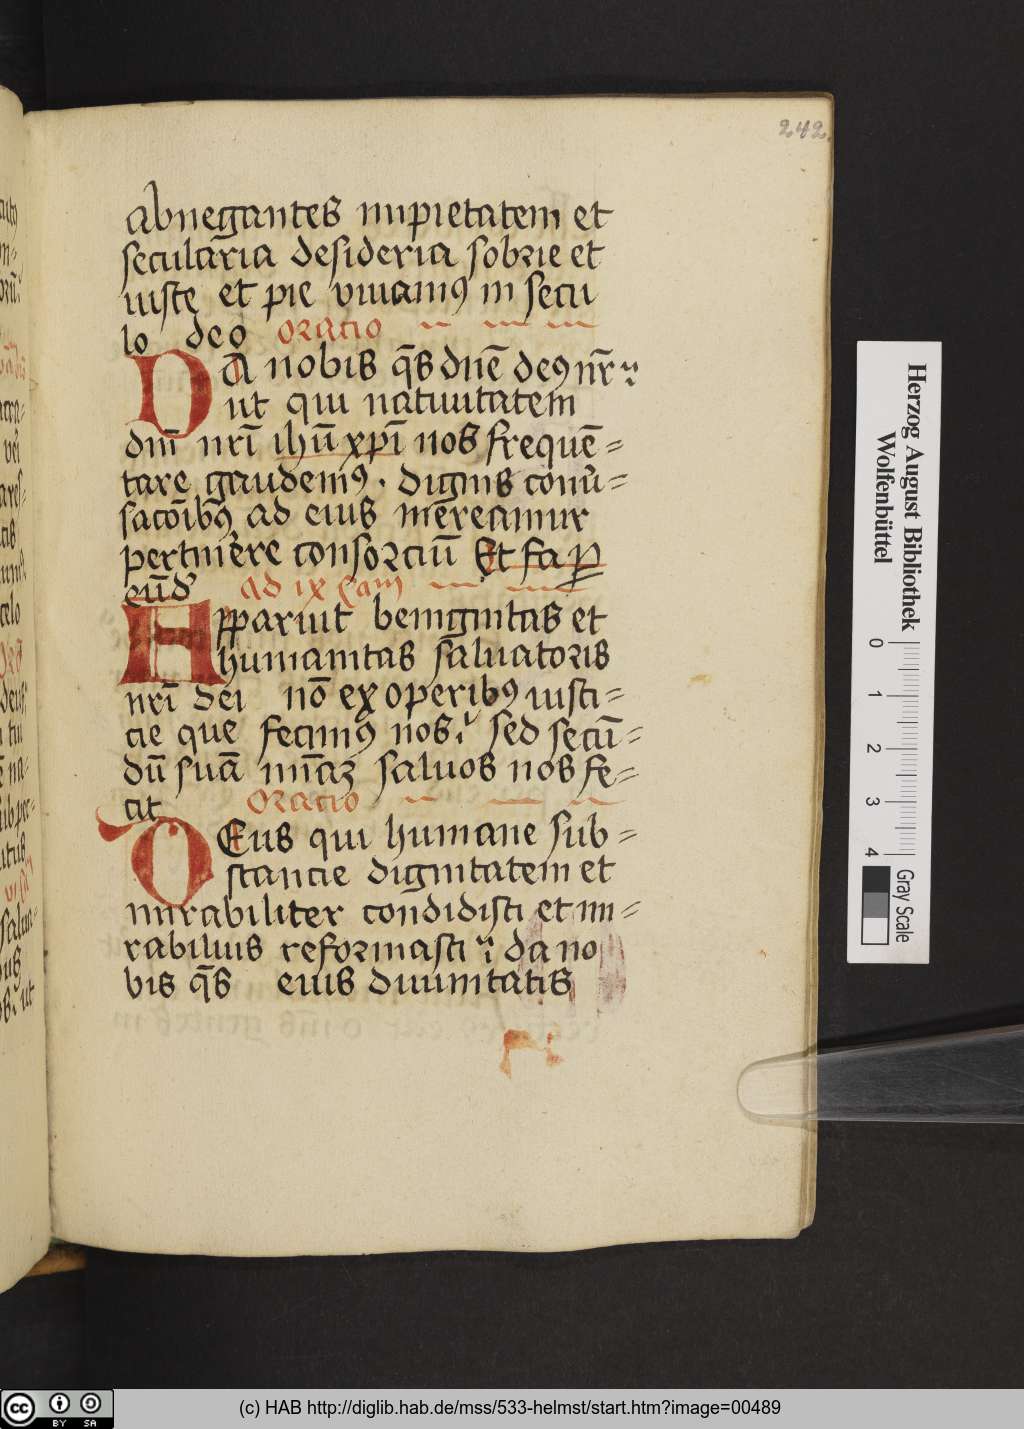 242.
abnegantes impietatem et
secularia desideria sobrie et
iuste et pie viuamꝯ in secu
lo deo oracio
DA nobis q̄s dn̄e deꝯ nr̄
ut qui natiuitatem
dn̄i nr̄i ihū xp̄i nos frequē=
tare gaudemꝯ · dignis conū=
sacōibꝯ ad eius mereamur
pertinere consorciū Et fa p
eūd ad ix cam
Apparuit benignitas et
humanitas saluatoris
nr̄i dei nō ex operibꝯ iusti=
cie que fecimꝯ nos sed secū=
dū suā mīaʒ saluos nos fe=
cit Oracio
DEus qui humane sub=
stancie dignitatem et
mirabiliter condidisti et mi=
rabilius reformasti da no
bis q̄s eius diuinitatis
Herzog August Bibliothek
Wolfenbüttel
0 1 2 3 4
Gray Scale
(c) HAB http://diglib.hab.de/mss/533-helmst/start.htm?image=00489
cc BY SA